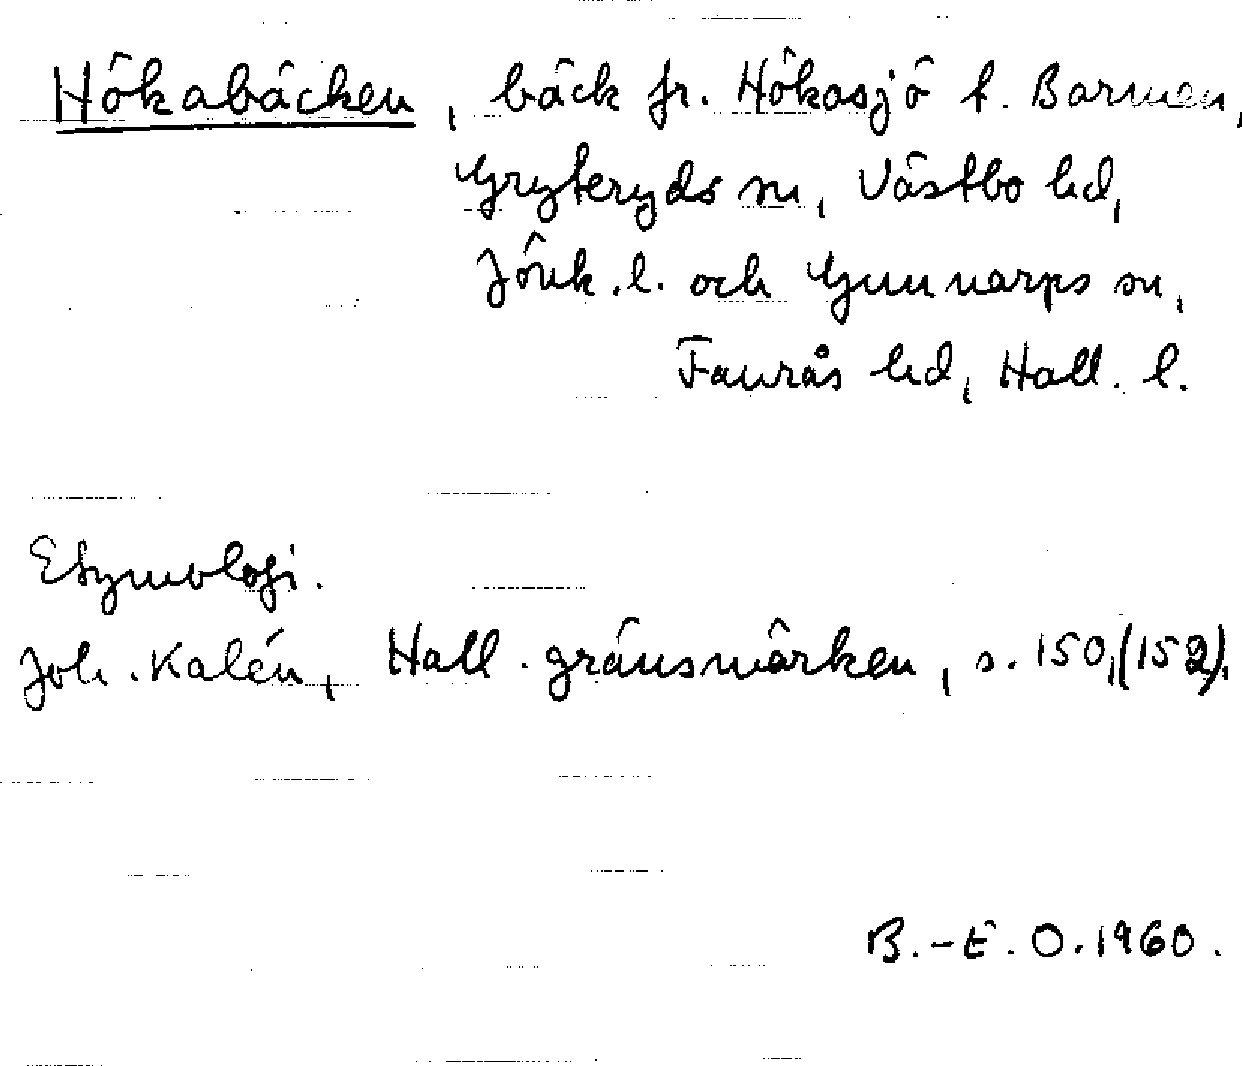 Hökabäcken, bäck fr. Hökasjö t. Barmen,
Gryteryds sn, Västbo hd,
Jönk. l. och Gunnarps sn,
Faurås hd, Hall. l.
Etymologi.
Joh. Kalén, Hall. gränsmärken, s. 150, (152).
B.-E. O. 1960.